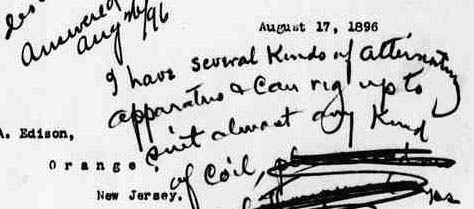 Answered
Aug 26/96
August 17, 1896
I have several kinds of alternating
apparatus & can rig up to
A. Edison,
suit almost any kind
Orange,
of coil,
New Jersey.